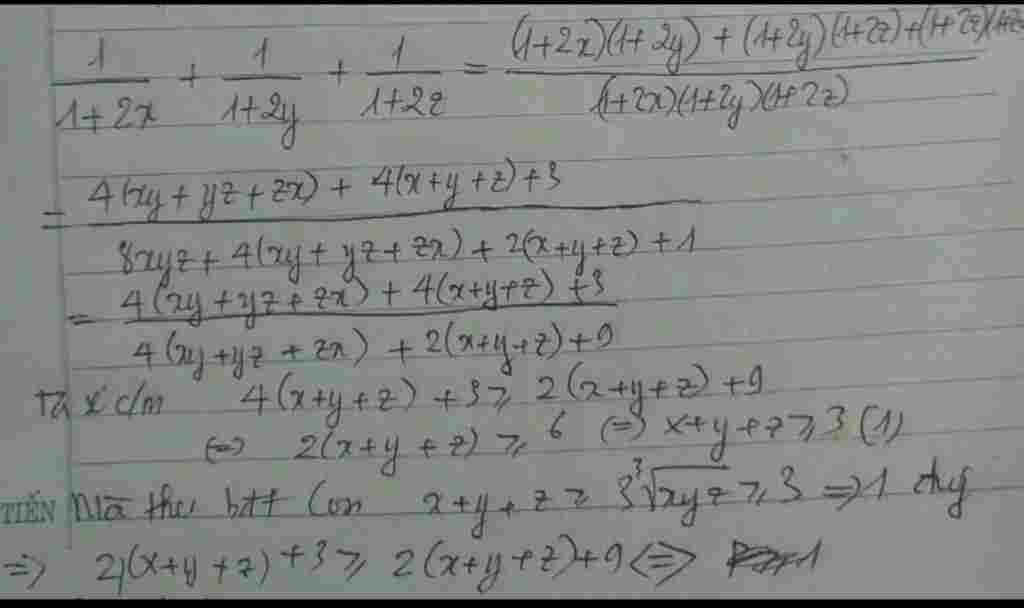 1/(1+2x) + 1/(1+2y) + 1/(1+2z) = ((1+2x)(1+2y) + (1+2y)(1+2z) + (1+2z)(1+2x))/((1+2x)(1+2y)(1+2z))
= (4(xy + yz + zx) + 4(x+y+z) + 3)/(8xyz + 4(xy + yz + zx) + 2(x+y+z) + 1)
= (4(xy + yz + zx) + 4(x+y+z) + 3)/(4(xy + yz + zx) + 2(x+y+z) + 9)
Ta c/m 4(x+y+z) + 3 ⩾ 2(x+y+z) + 9
<=> 2(x+y+z) ⩾ 6 <=> x+y+z ⩾ 3 (1)
TIẾN Mà the bđt Con x+y+z ⩾ 3∛xyz ⩾ 3 => 1 đúng
=> 4(x+y+z) + 3 ⩾ 2(x+y+z) + 9 <=> 1